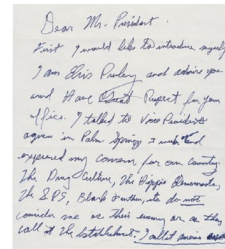 Dear Mr. President.
First I would like to introduce myself
I am Elvis Presley and admire you
and Have Great Respect for your
office. I talked to Vice President
Agnew in Palm Springs week and
expressed my concern for our country
The Drug Culture, The Hippie Elements,
The SDS, Black Panthers, etc do not
consider me as their enemy or as they
call it The Establishment. I call it